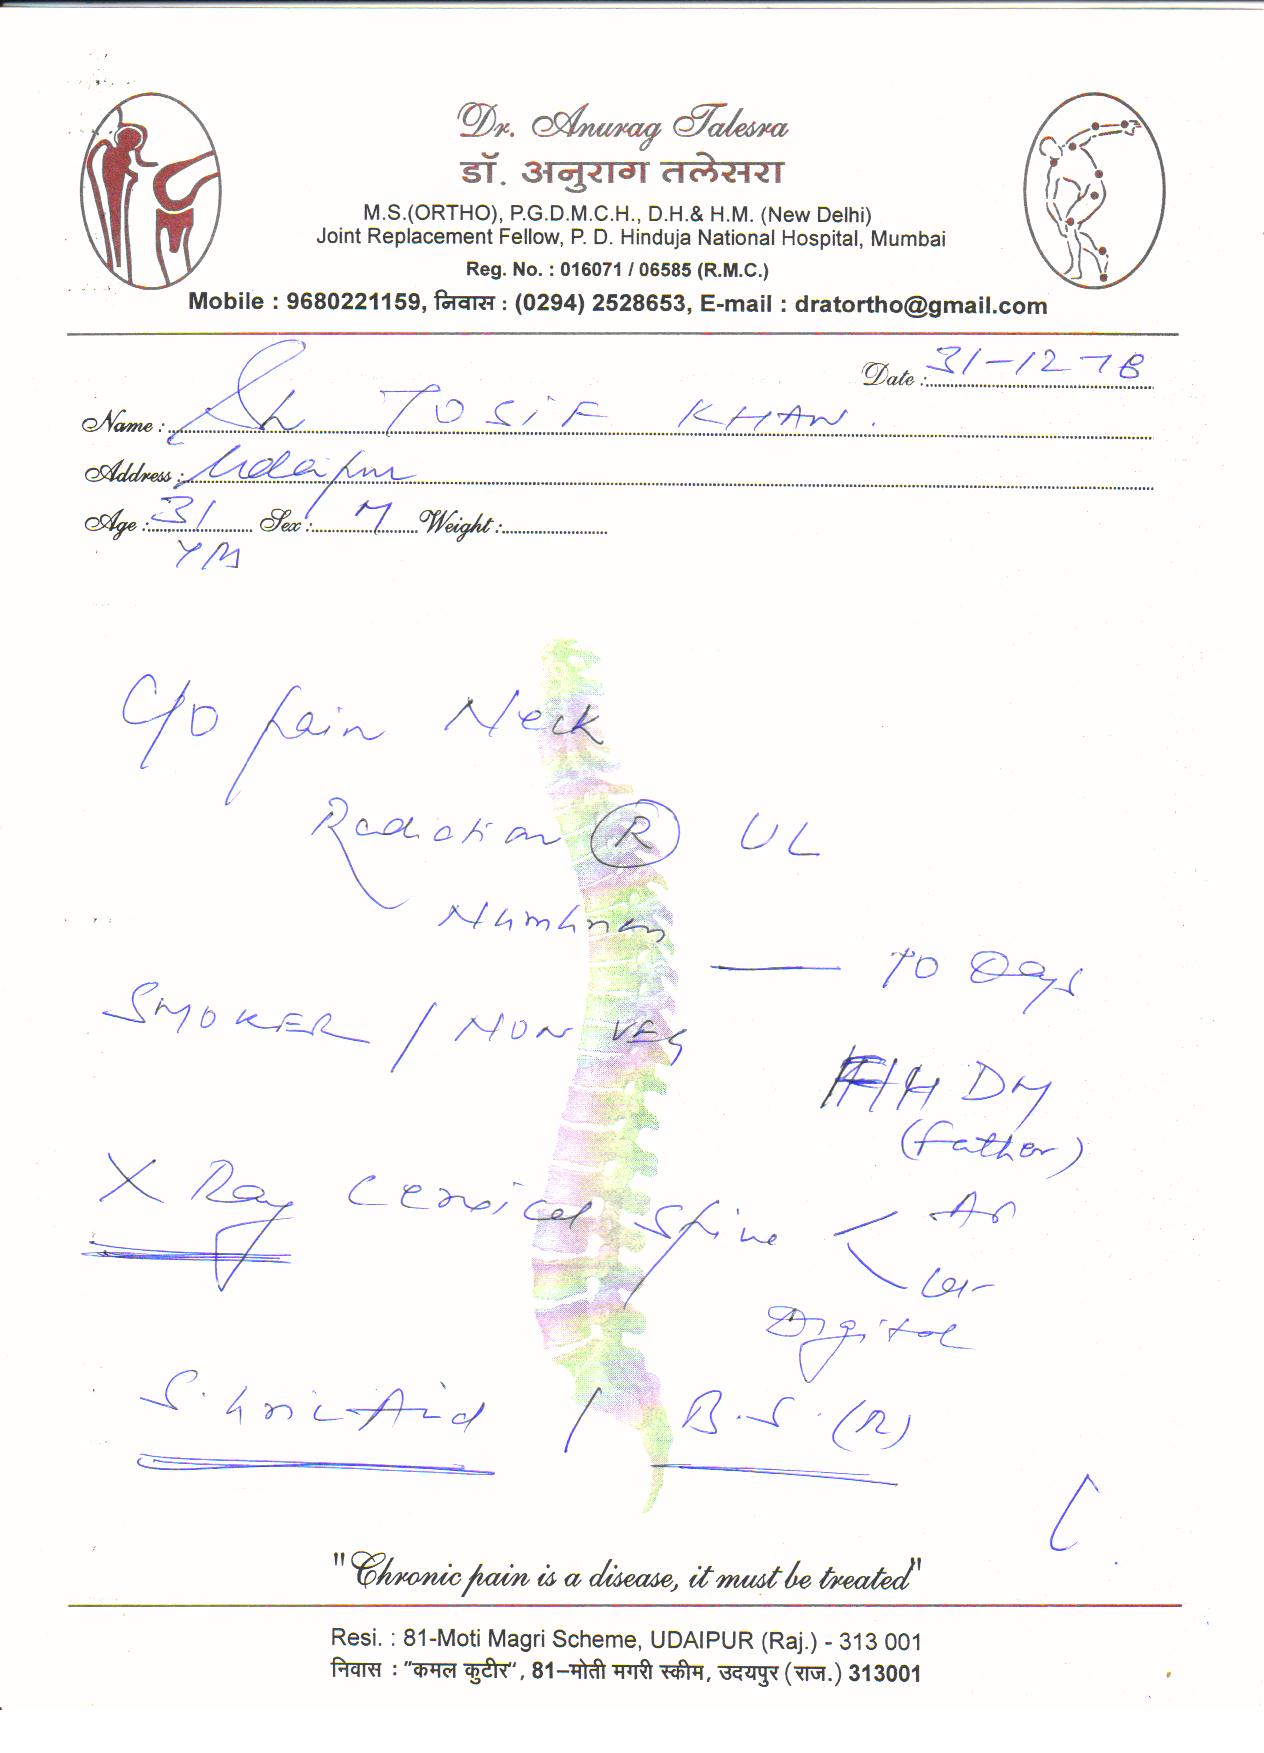 Dr. Anurag Talesra
डॉ. अनुराग तलेसरा
M.S.(ORTHO), P.G.D.M.C.H., D.H.& H.M. (New Delhi)
Joint Replacement Fellow, P. D. Hinduja National Hospital, Mumbai
Reg. No. : 016071 / 06585 (R.M.C.)
Mobile : 9680221159, निवास : (0294) 2528653, E-mail : dratortho@gmail.com
Date : 31-12-18
Name : Sh TOSIF KHAN.
Address : Udaipur
Age : 31 Sex : M Weight :
C/O Pain Neck
Radiation (R) UL
Numbness
10 Days
SMOKER / NON VEG
F/H DM
(father)
X Ray Cervical Spine < AP
Lat
Digital
S. Uric Acid / B.S. (R)
"Chronic pain is a disease, it must be treated"
Resi. : 81-Moti Magri Scheme, UDAIPUR (Raj.) - 313 001
निवास : "कमल कुटीर", 81–मोती मगरी स्कीम, उदयपुर (राज.) 313001